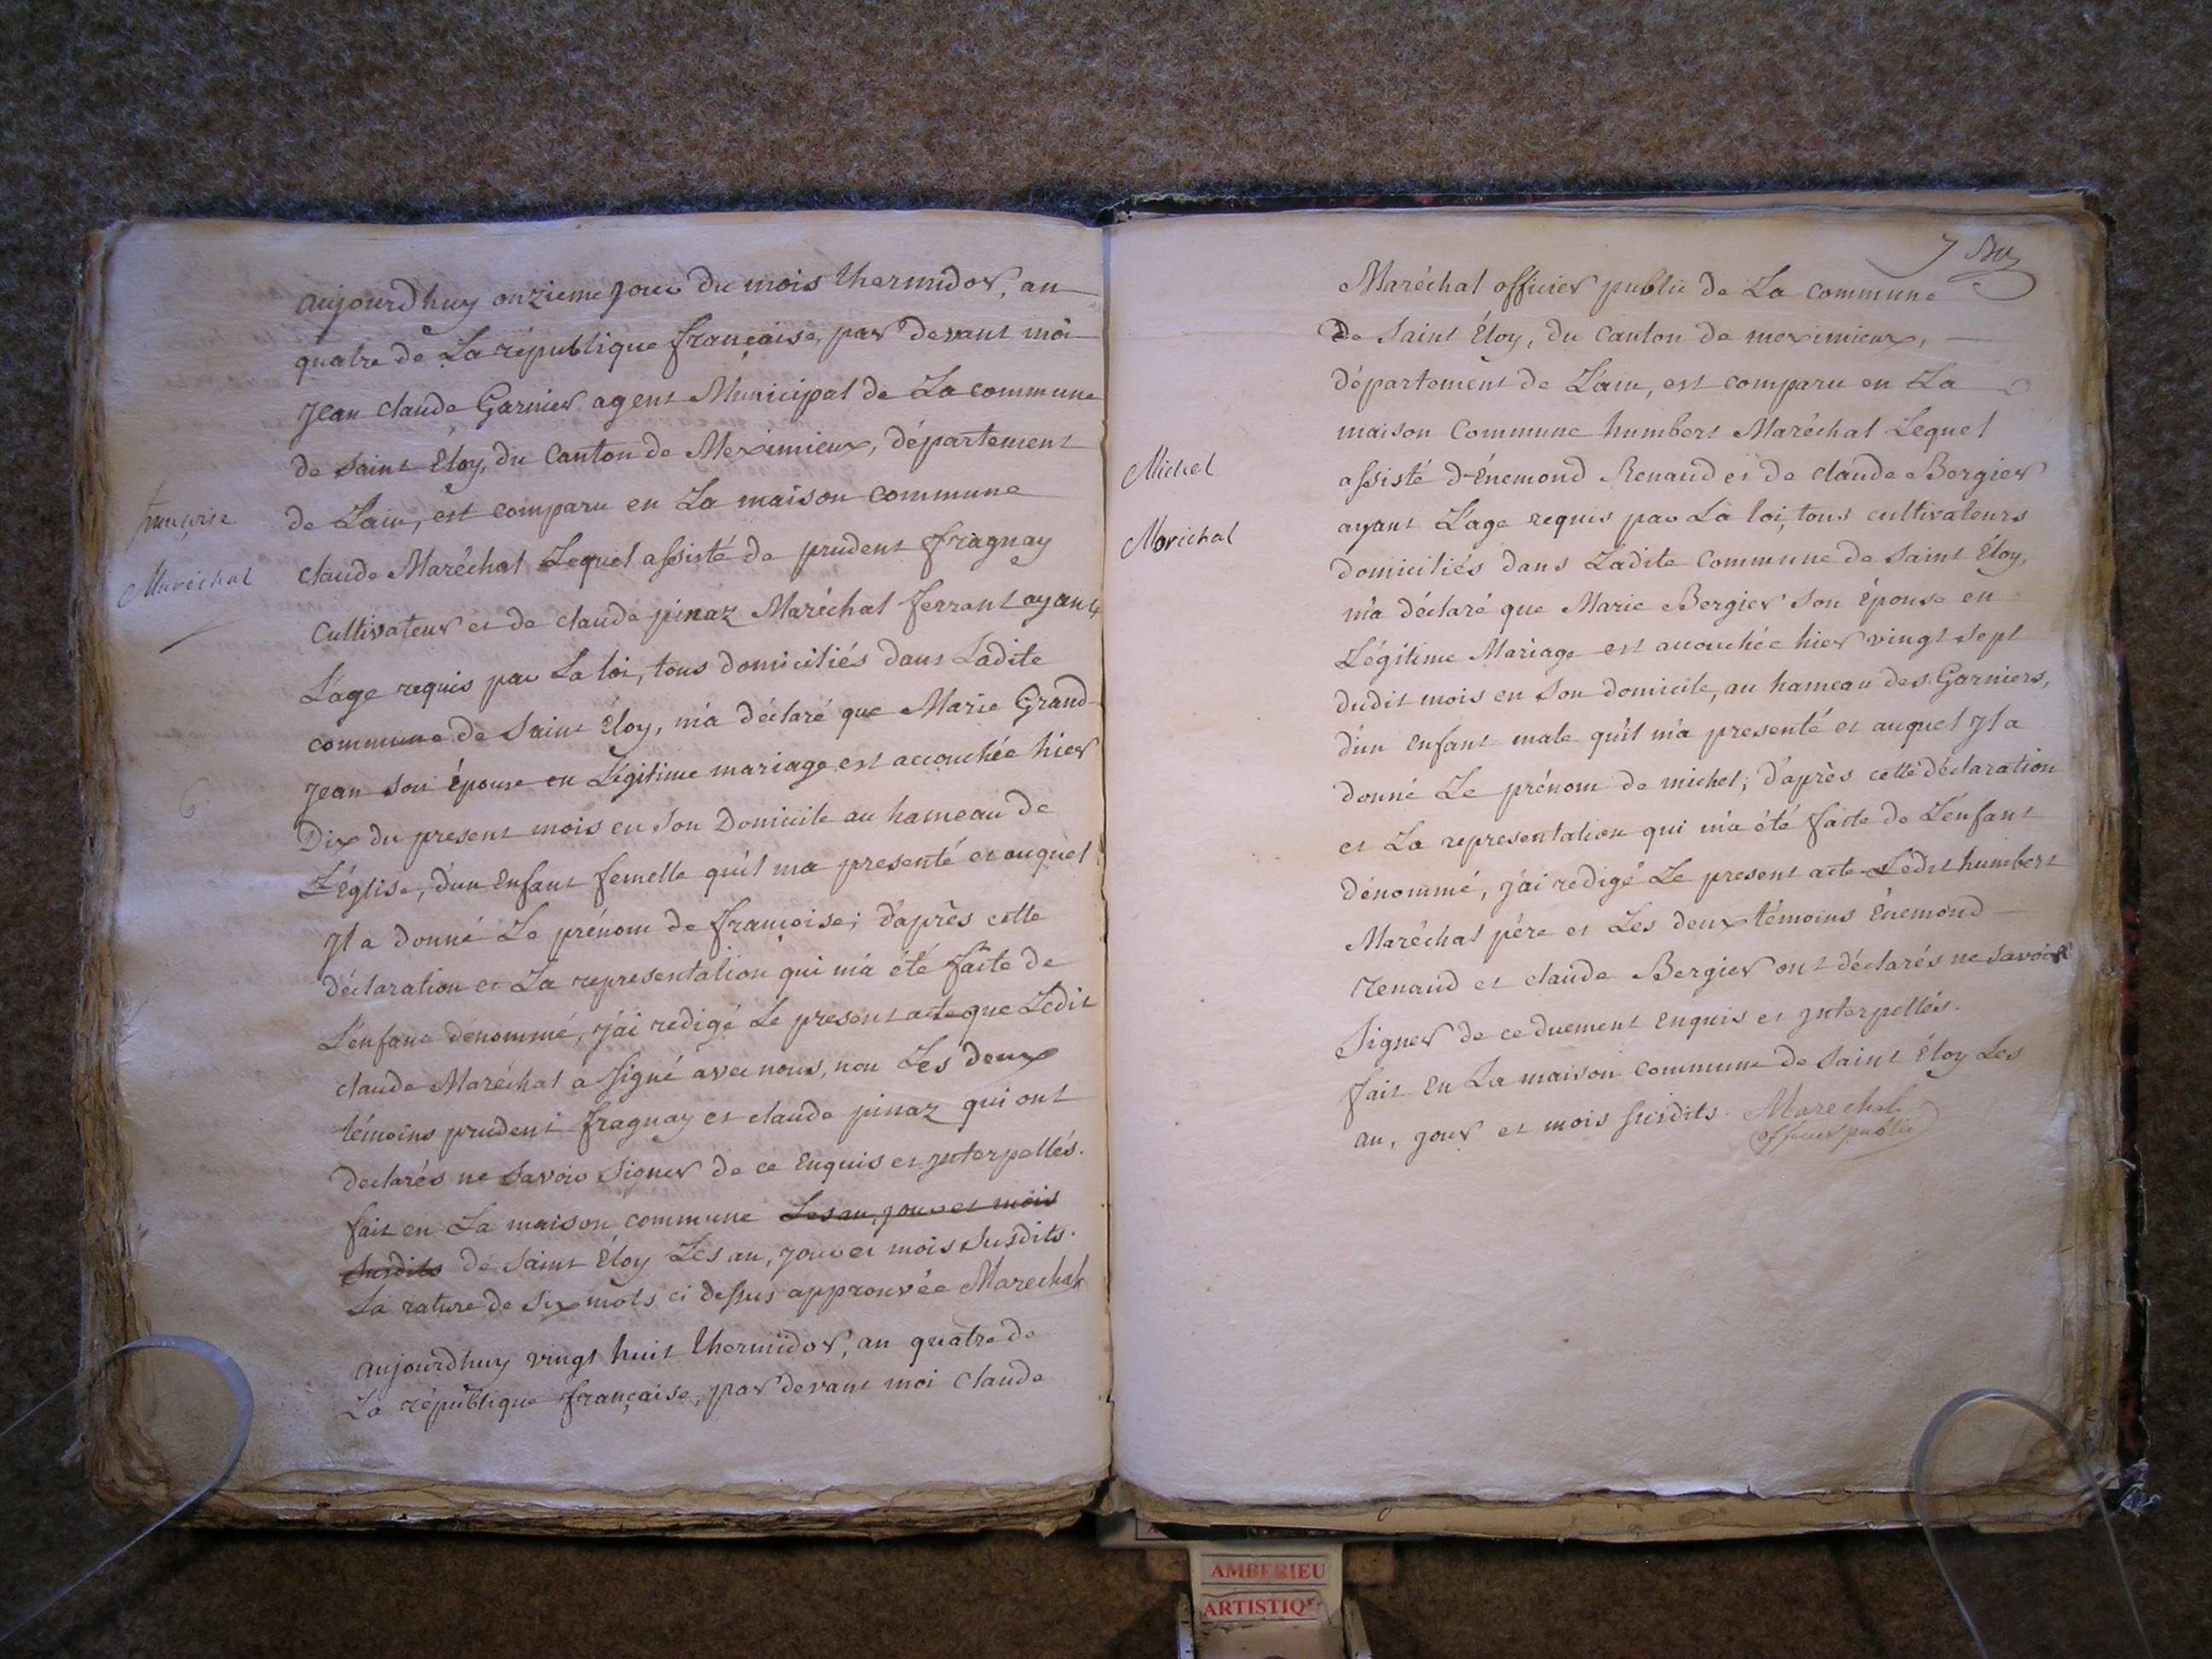 aujourdhuy onzieme jour du mois thermidor, an
quatre de La république française, par devant moi
jean claude Garnier agent Municipal de La commune
de saint Éloy, du Canton de Meximieux, département
de Lain, est comparu en La maison commune
françoise
claude Maréchal Lequel assisté de prudent fragnay
Maréchal
Cultivateur et de claude pinaz Maréchal ferrant ayant
L'age requis par La loi, tous domiciliés dans Ladite
commune de Saint Éloy, m'a déclaré que Marie Grand-
jean son Épouse en Légitime mariage est accouchée hier
Dix du present mois en son Domicile au hameau de
L'église, d'un Enfant femelle qu'il ma presenté et auquel
Jl a donné Le prénom de françoise; d'après cette
déclaration et La representation qui m'a été faite de
L'enfant dénommé, j'ai redigé Le present acte que Ledit
claude Maréchal a signé avec nous, non Les deux
témoins prudent fragnay et claude pinaz qui ont
declarés ne savoir signer de ce Enquis et Jnterpellés.
fait en La maison commune Les an, jour et mois
susdits de Saint Éloy Les an, jour et mois susdits.
La rature de six mots ci dessus approuvée Marechal
aujourdhuy vingt huit thermidor, an quatre de
La république française, par devant moi claude
7
Maréchal officier public de La commune
de Saint Éloy, du Canton de meximieux,
département de L'ain, est comparu en La
maison Commune humbert Maréchal Lequel
Michel
assisté d'Énemond Renaud et de claude Bergier
ayant L'age requis par La loi, tous cultivateurs
Marichal
domiciliés dans Ladite Commune de Saint Éloy,
m'a déclaré que Marie Bergier son Épouse en
Légitime Mariage est accouchée hier vingt sept
dudit mois en son domicile, au hameau des Garniers,
d'un Enfant male qu'il m'a presenté et auquel Jl a
donné Le prénom de michel; d'après cette déclaration
et La representation qui m'a été faite de L'enfant
dénommé, j'ai redigé Le present acte Ledit humbert
Maréchal père et Les deux témoins Énemond
renaud et claude Bergier ont déclarés ne savoir
signer de ce duement Enquis et Jnterpellés.
fait En La maison commune de Saint Éloy Les
an, jour et mois susdits. Marechal
officier public
AMBERIEU
ARTISTIQ